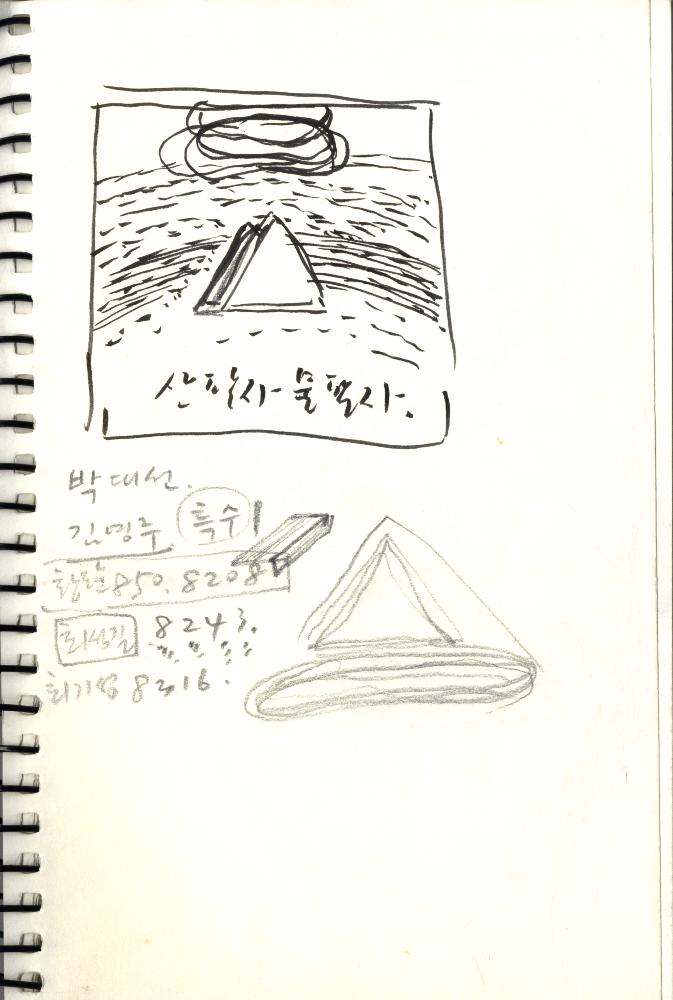 산팔사 물팔사.
박대선.
김명주 특수
850. 8208
최성길 8243.
최기영 8216.